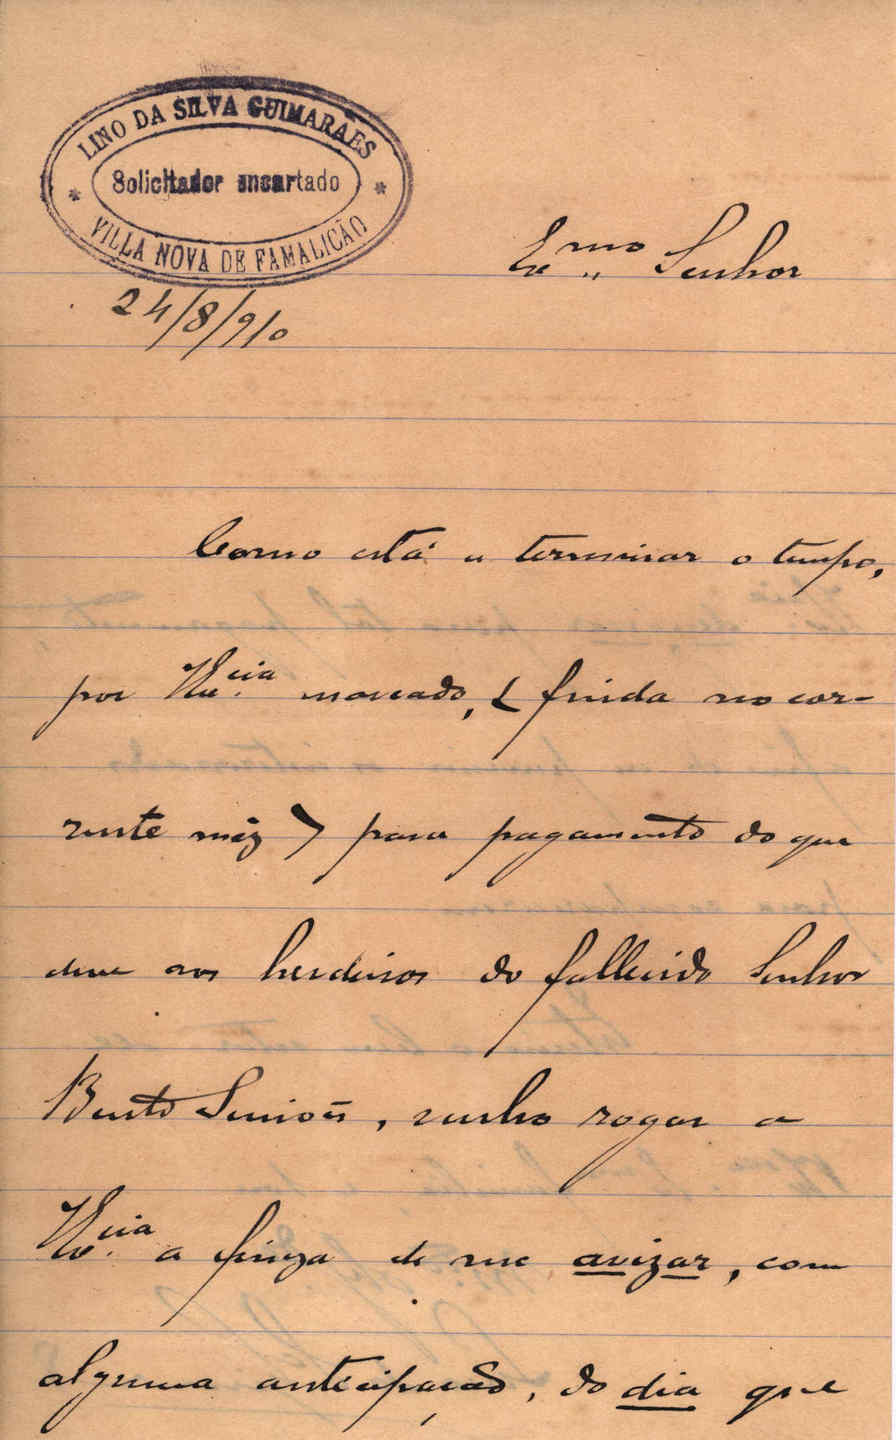 LINO DA SILVA GUIMARÃES
Solicitador encartado
VILLA NOVA DE FAMALICÃO
24/8/910
Exmo Senhor
Como está a terminar o tempo,
por V Excia marcado, ( finda no cor-
rente mêz ) para pagamento do que
deve aos herdeiros do fallecido Senhor
Bento Simões, venho rogar a
V Excia a fineza de me avizar, com
alguma anticipação, do dia que